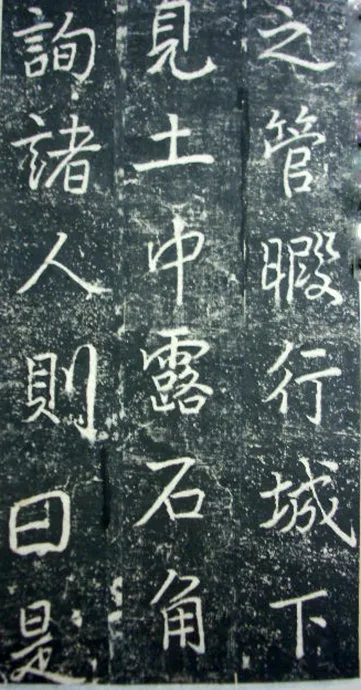 之管暇行城下
見土中露石角
詢諸人則曰是